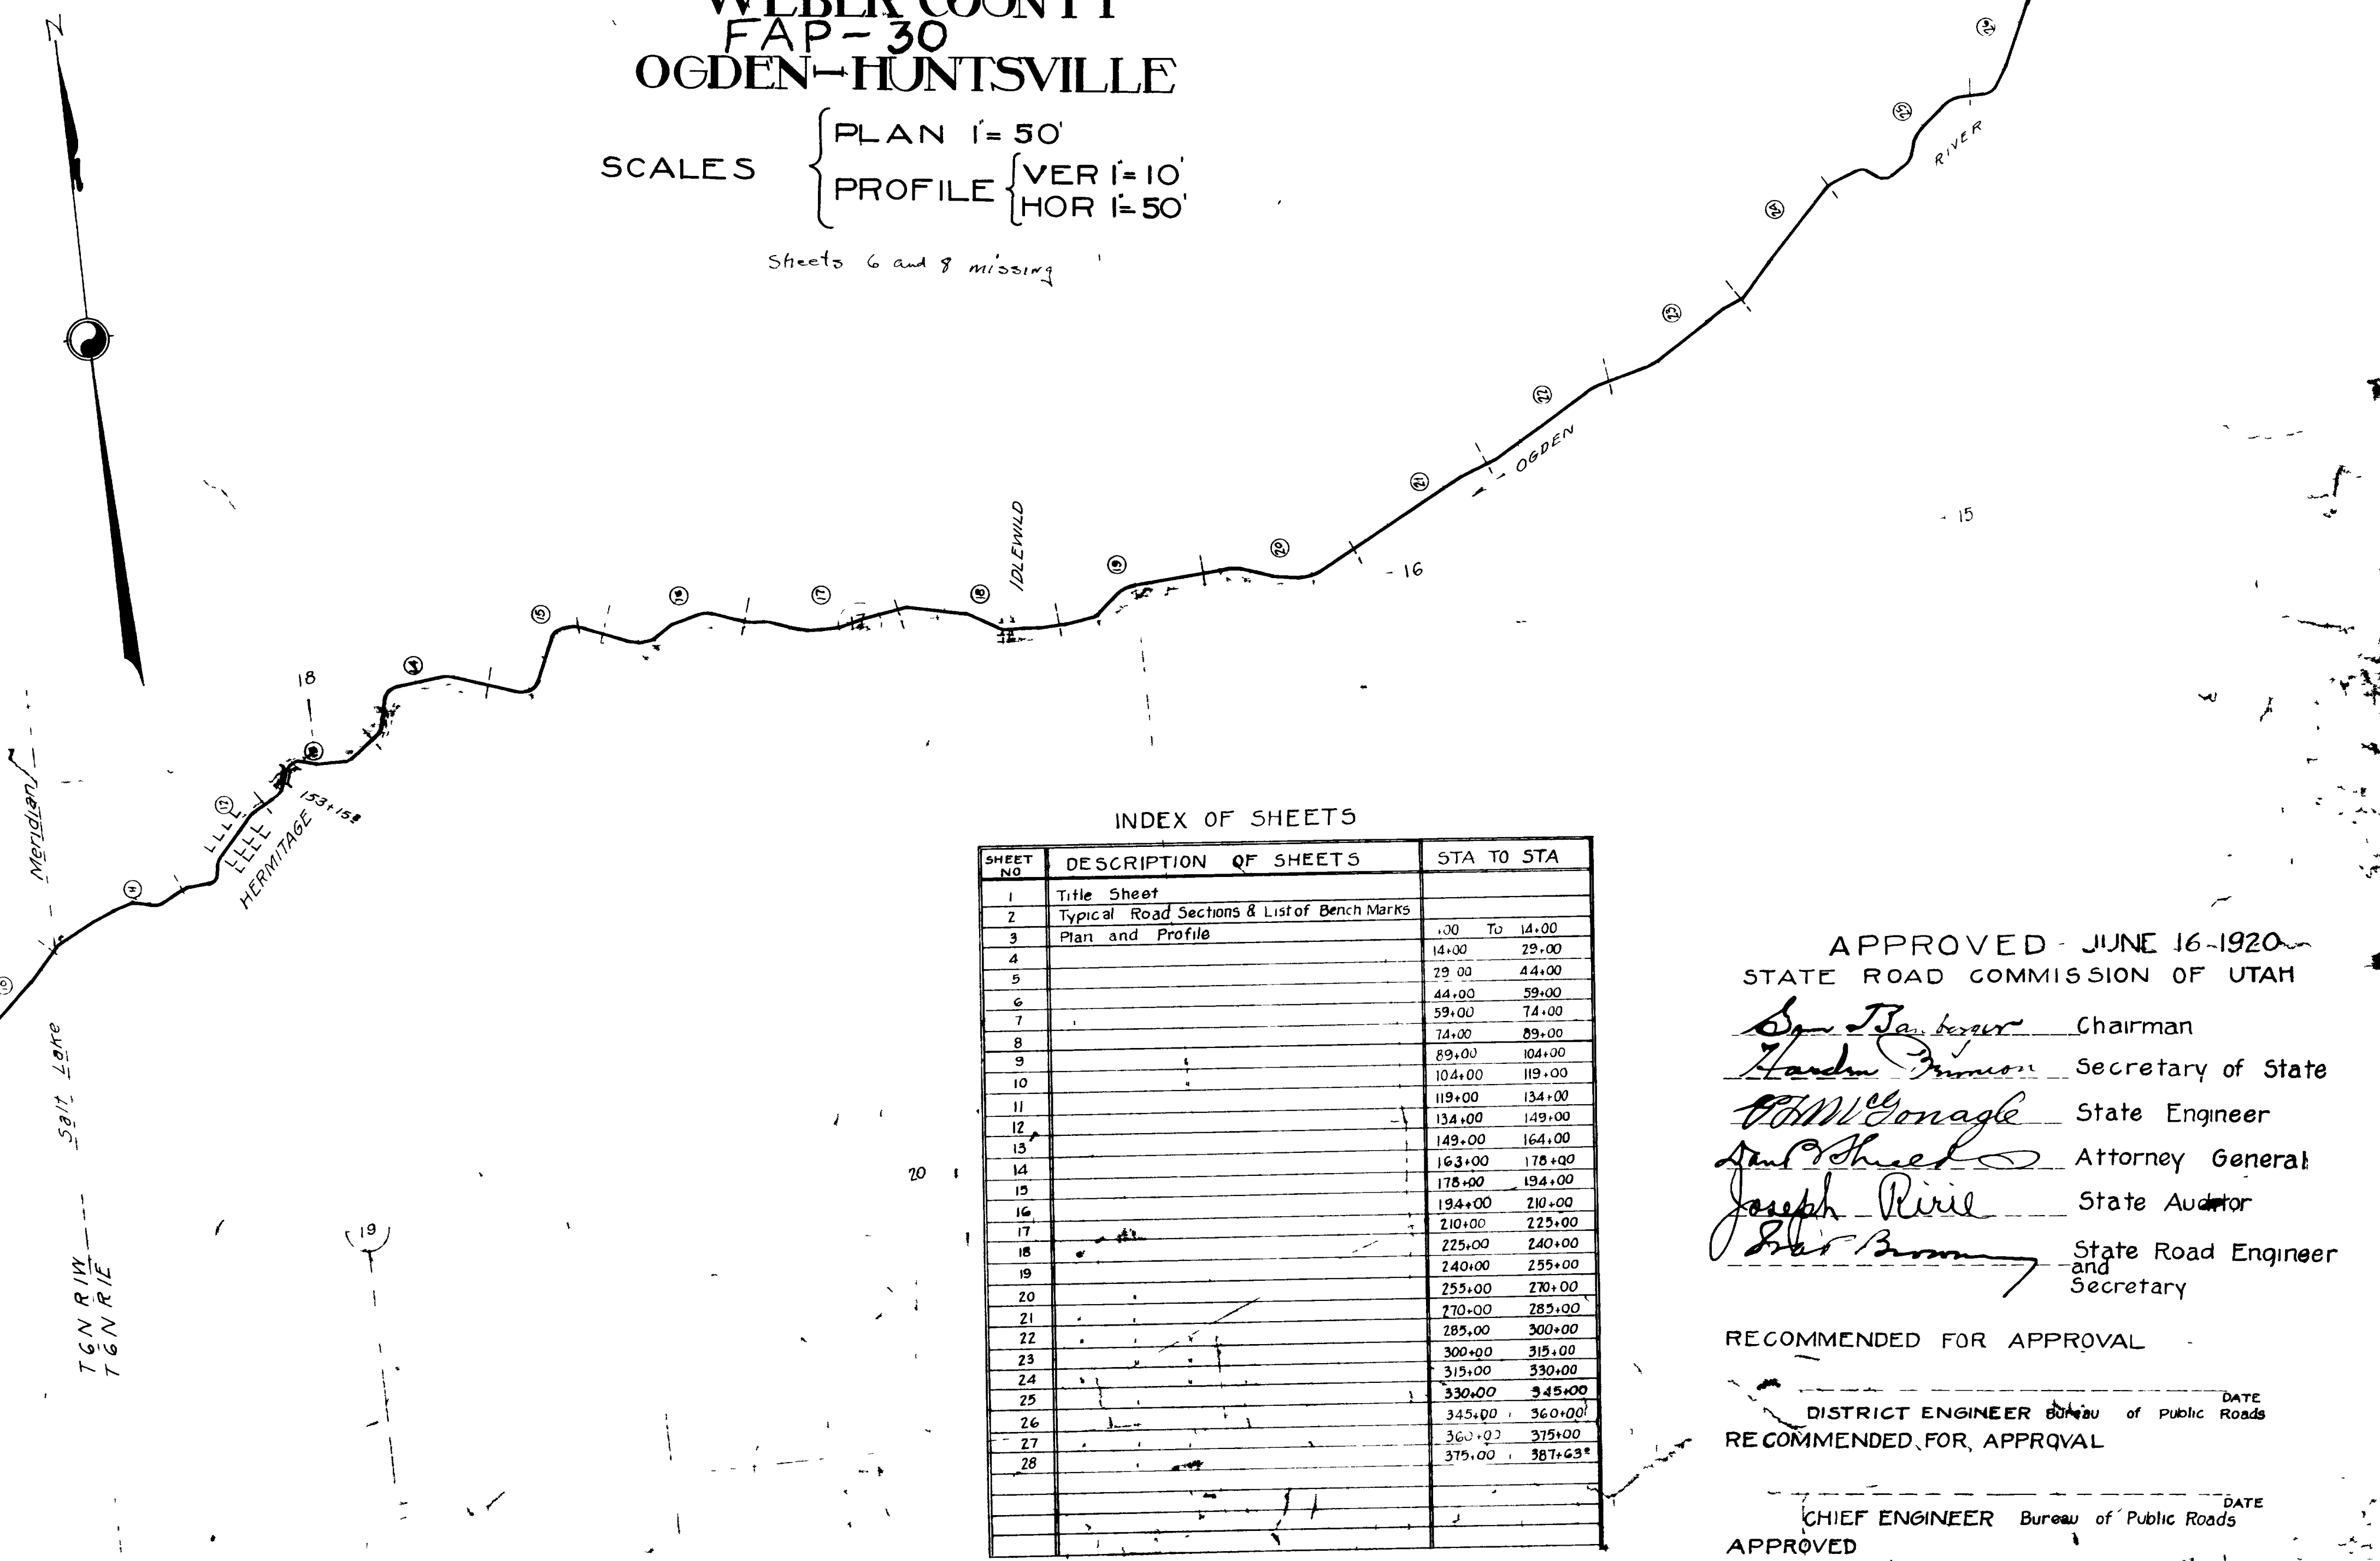 WEBER COUNTY
FAP-30
OGDEN-HUNTSVILLE
SCALES
PLAN 1"= 50'
PROFILE
VER 1"= 10'
HOR 1"= 50'
Sheets 6 and 8 missing
N
26
25
RIVER
24
23
22
OGDEN
21
15
20
16
19
IDLEWILD
18
17
16
15
14
18
153+15
12
HERMITAGE
11
10
Meridian
Salt Lake
T6N R1W
T6N R1E
19
20
INDEX OF SHEETS
SHEET NO DESCRIPTION OF SHEETS STA TO STA
1 Title Sheet
2 Typical Road Sections & List of Bench Marks
3 Plan and Profile +00 To 14+00
4 14+00 29+00
5 29 00 44+00
6 44+00 59+00
7 59+00 74+00
8 74+00 89+00
9 89+00 104+00
10 104+00 119+00
11 119+00 134+00
12 134+00 149+00
13 149+00 164+00
14 163+00 178+00
15 178+00 194+00
16 194+00 210+00
17 210+00 225+00
18 225+00 240+00
19 240+00 255+00
20 255+00 270+00
21 270+00 285+00
22 285+00 300+00
23 300+00 315+00
24 315+00 330+00
25 330+00 345+00
26 345+00 360+00
27 360+00 375+00
28 375+00 387+63
APPROVED - JUNE 16-1920
STATE ROAD COMMISSION OF UTAH
Chairman
Secretary of State
McGonagle State Engineer
Attorney General
Joseph Ririe State Auditor
Brown State Road Engineer
and
Secretary
RECOMMENDED FOR APPROVAL
DATE
DISTRICT ENGINEER Bureau of Public Roads
RECOMMENDED FOR APPROVAL
DATE
CHIEF ENGINEER Bureau of Public Roads
APPROVED